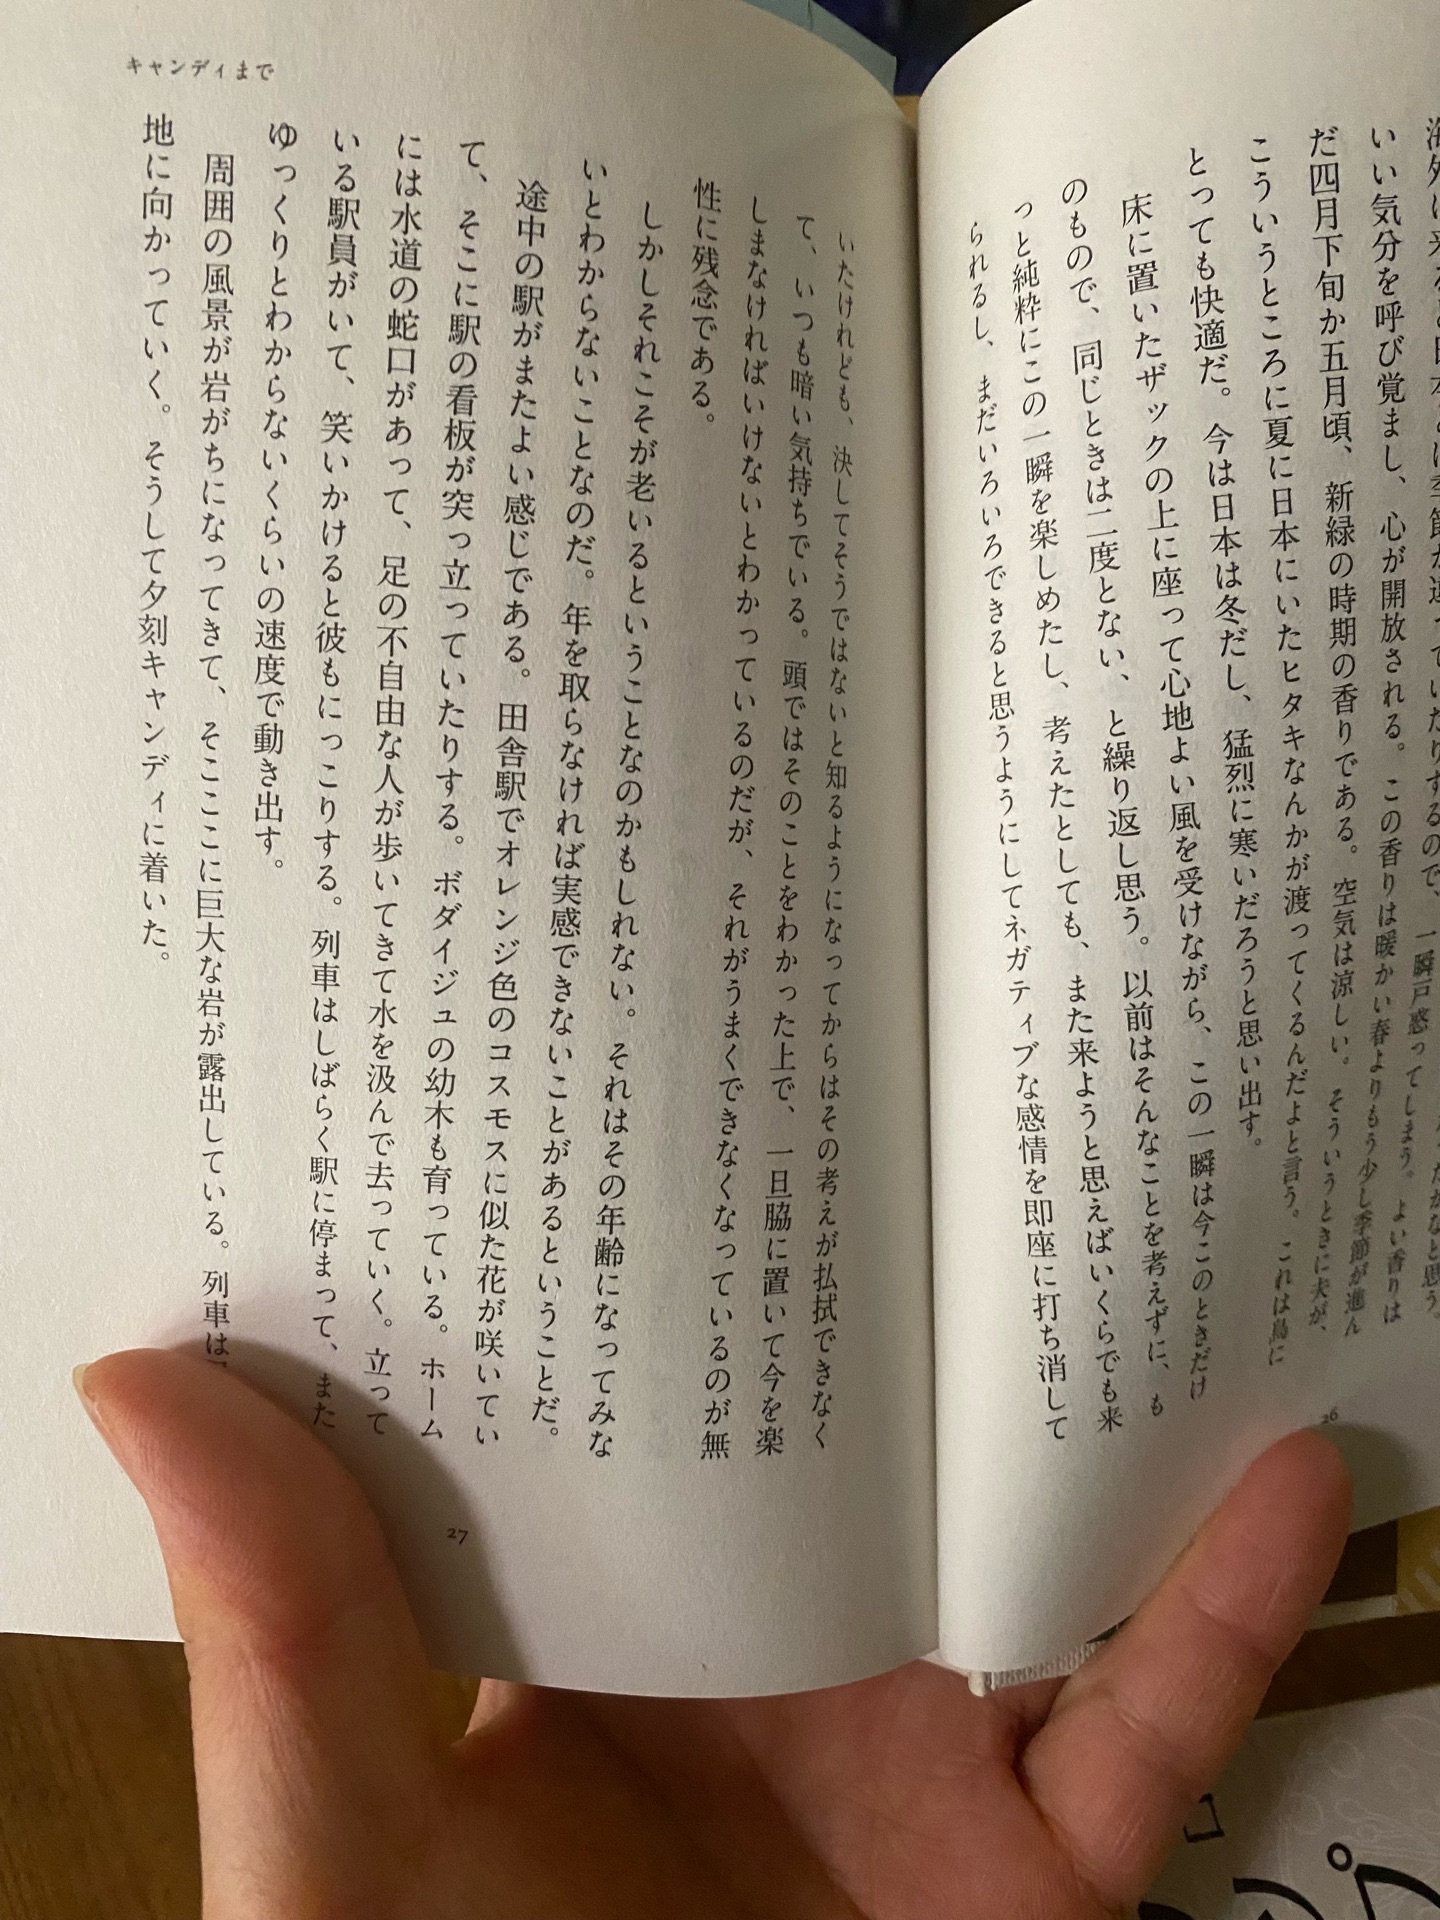 いい気分を呼び覚まし、心が開放される。この香りは暖かい春よりもう少し季節が進ん
だ四月下旬か五月頃、新緑の時期の香りである。空気は涼しい。そういうときに夫が、
こういうところに夏に日本にいたヒタキなんかが渡ってくるんだよと言う。これは鳥に
とっても快適だ。今は日本は冬だし、猛烈に寒いだろうと思い出す。
床に置いたザックの上に座って心地よい風を受けながら、この一瞬は今このときだけ
のもので、同じときは二度とない、と繰り返し思う。以前はそんなことを考えずに、も
っと純粋にこの一瞬を楽しめたし、考えたとしても、また来ようと思えばいくらでも来
られるし、まだいろいろできると思うようにしてネガティブな感情を即座に打ち消して
26
キャンディまで
いたけれども、決してそうではないと知るようになってからはその考えが払拭できなく
て、いつも暗い気持ちでいる。頭ではそのことをわかった上で、一旦脇に置いて今を楽
しまなければいけないとわかっているのだが、それがうまくできなくなっているのが無
性に残念である。
しかしそれこそが老いるということなのかもしれない。それはその年齢になってみな
いとわからないことなのだ。年を取らなければ実感できないことがあるということだ。
途中の駅がまたよい感じである。田舎駅でオレンジ色のコスモスに似た花が咲いてい
て、そこに駅の看板が突っ立っていたりする。ボダイジュの幼木も育っている。ホーム
には水道の蛇口があって、足の不自由な人が歩いてきて水を汲んで去っていく。立って
いる駅員がいて、笑いかけると彼もにっこりする。列車はしばらく駅に停まって、また
ゆっくりとわからないくらいの速度で動き出す。
周囲の風景が岩がちになってきて、そこここに巨大な岩が露出している。列車は
地に向かっていく。そうして夕刻キャンディに着いた。
27